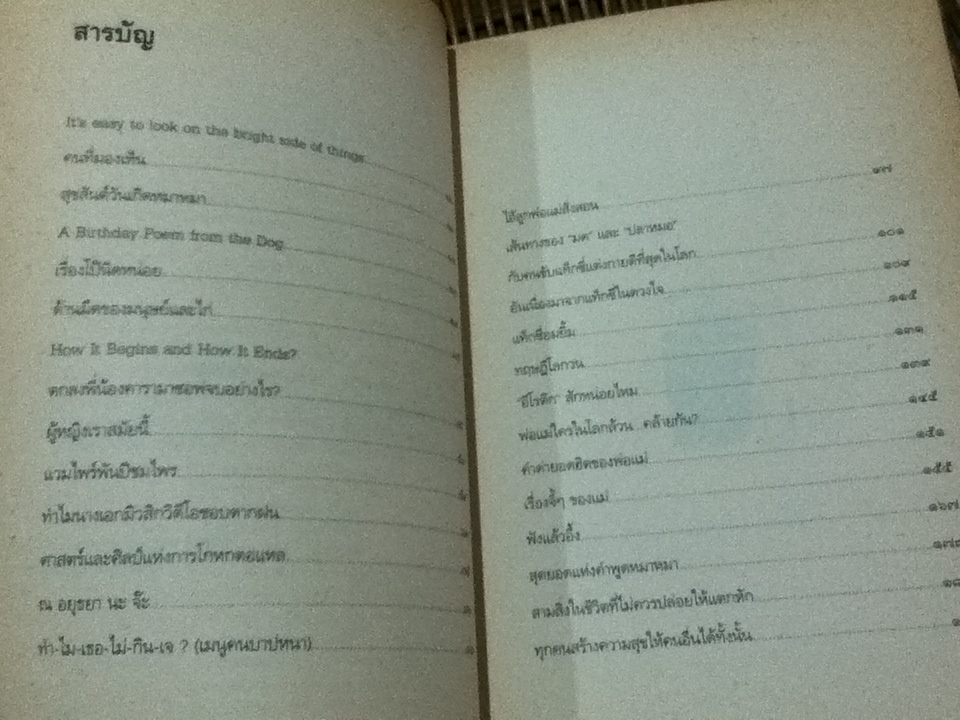 สารบัญ
It's easy to look on the bright side of things
คนที่มองเห็น
สุขสันต์วันเกิดหมาหมา
A Birthday Poem from the Dog
เรื่องโป๊นิดหน่อย
ด้านมืดของมนุษย์และไก่
How It Begins and How It Ends?
ตกลงพี่น้องคารามาซอฟจบอย่างไร?
ผู้หญิงเราสมัยนี้
แวมไพร์พันปีชมไพร
ทำไมนางเอกมิวสิกวิดีโอชอบตากฝน
ศาสตร์และศิลป์แห่งการโกหกตอแหล
ณ อยุธยา นะ จ๊ะ
ทำ-ไม-เธอ-ไม่-กิน-เจ ? (เมนูคนบาปหนา)
ไอ้ลูกพ่อแม่สั่งสอน ๙๗
เส้นทางของ "มด" และ "ปลาหมอ"
กับคนขับแท็กซี่แต่งกายดีที่สุดในโลก ๑๐๑
อันเนื่องมาจากแท็กซี่ในดวงใจ ๑๐๙
แท็กซี่อมยิ้ม ๑๑๕
ทฤษฎีโลกวน ๑๓๑
"อีโรติก" สักหน่อยไหม ๑๓๙
พ่อแม่ใครในโลกล้วน...คล้ายกัน? ๑๔๕
คำด่ายอดฮิตของพ่อแม่ ๑๕๑
เรื่องจี๊ๆ ของแม่ ๑๕๕
ฟังแล้วอึ้ง ๑๖๗
สุดยอดแห่งคำพูดหมาหมา
สามสิ่งในชีวิตที่ไม่ควรปล่อยให้แตกหัก
ทุกคนสร้างความสุขให้คนอื่นได้ทั้งนั้น